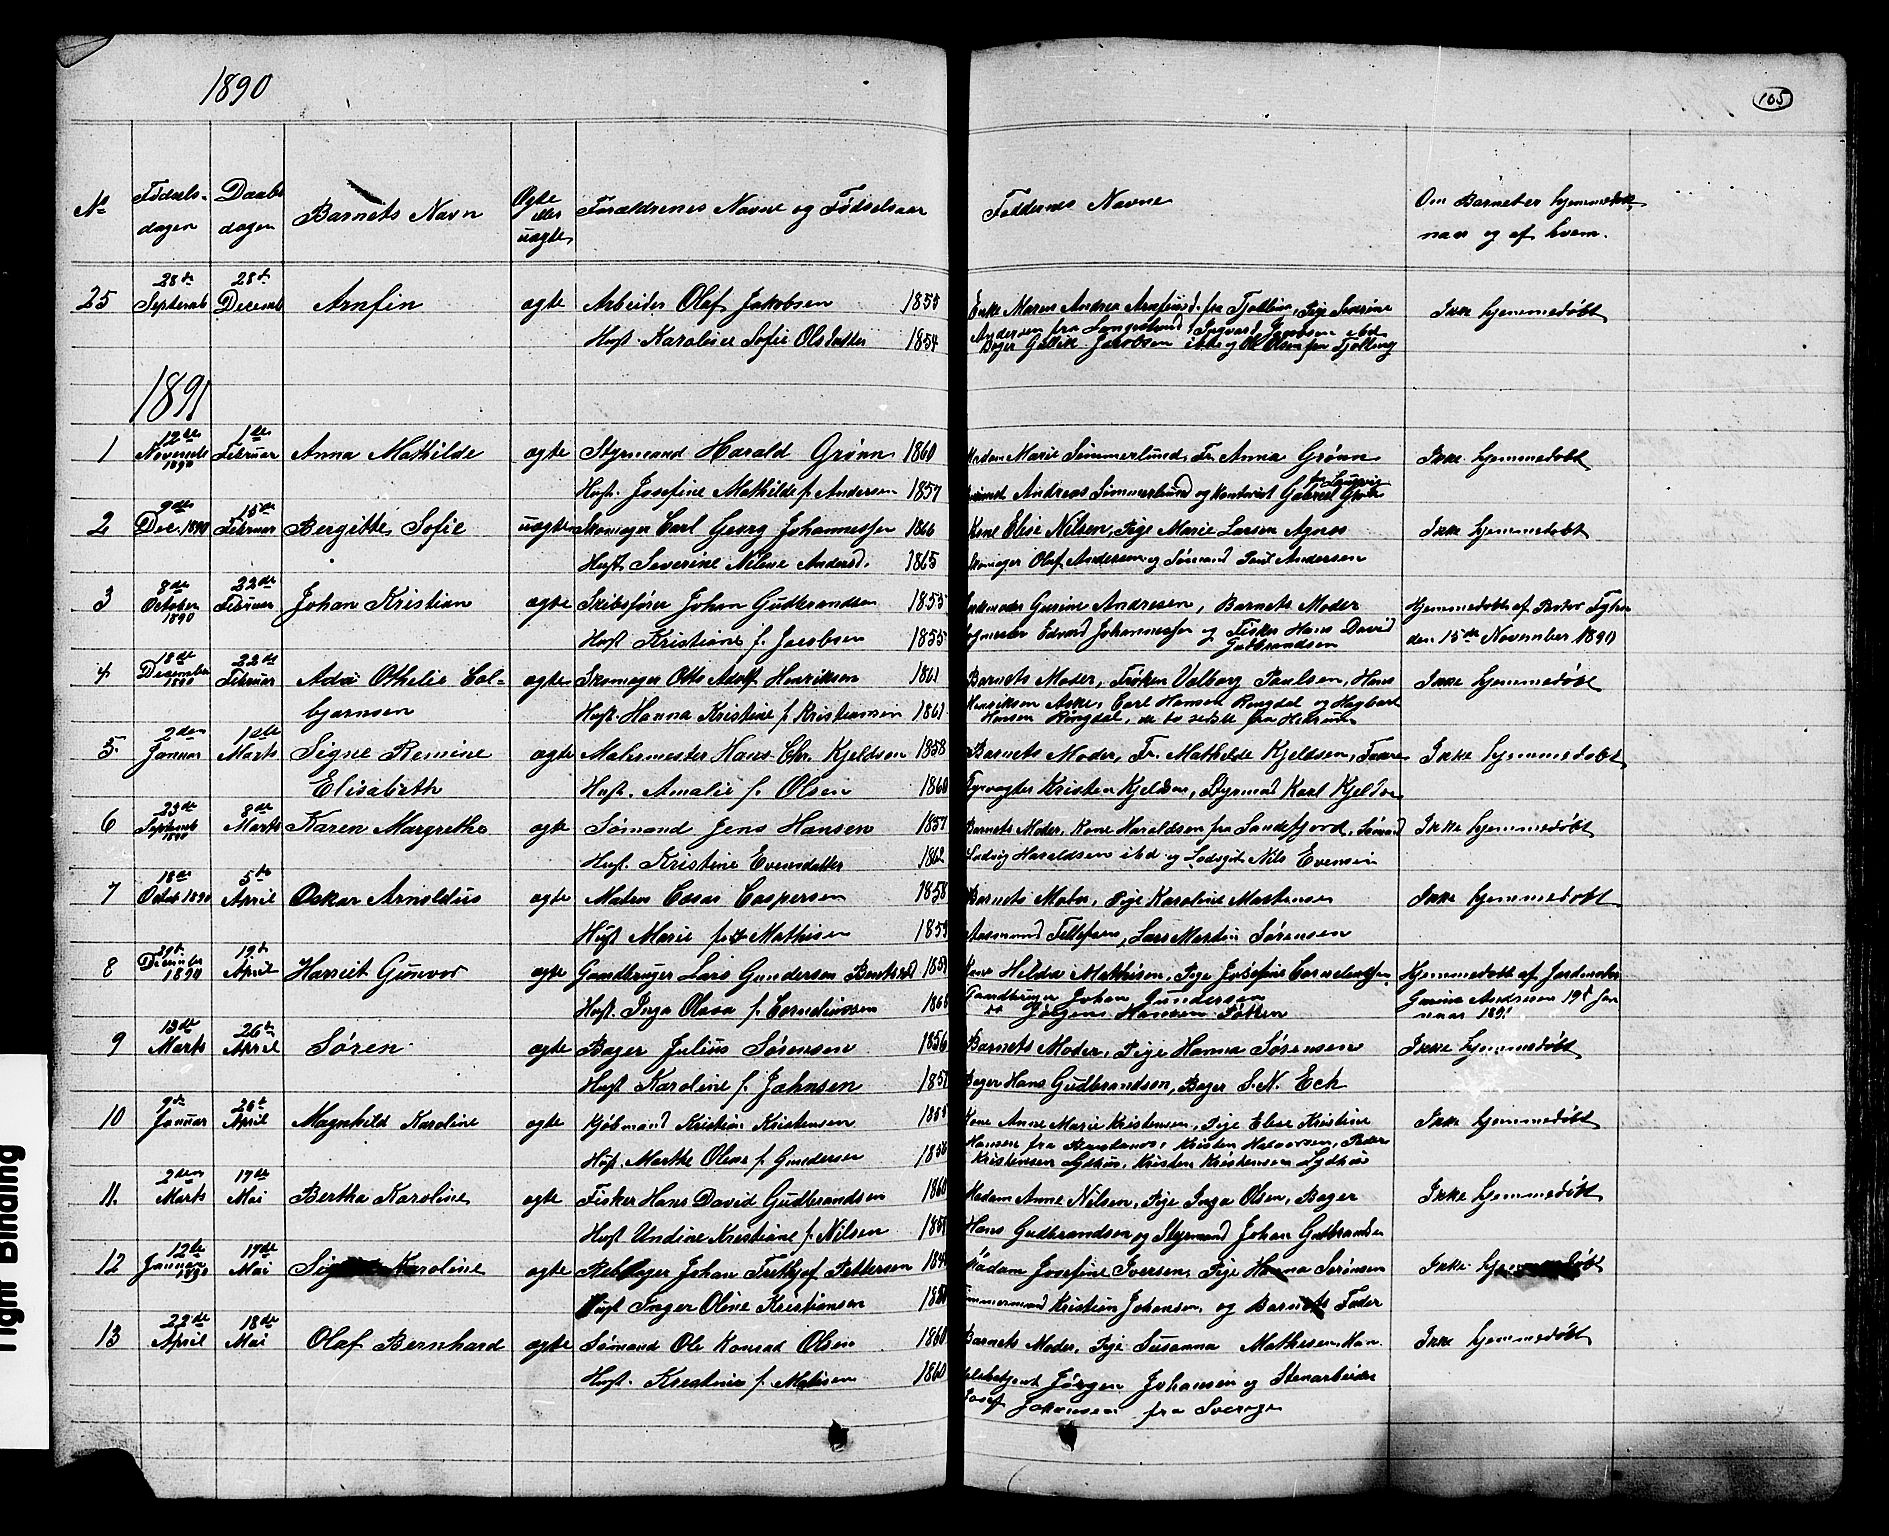 1890
105
No Fødsels- Daabs Barnets Navn Ægte Forældrenes Navne og Fødselsaar Faddernes Navne Om Barnet er hjemmedøbt
dagen dagen eller naar og af hvem.
uægte
28de 28de
25 Septemb Decemb Arnfin ægte Arbeider Olaf Jakobsen 1855 Enke Maren Andrea fra Tjølling, Pige Severine Ikke hjemmedøbt
Hust. Karoline Sofie Olsdatter 1854 Andersen fra Langestrand, Ingvard Jacobsen ibd
Bager Jacobsen ibd og Ole Olsen fra Tjølling
1891
12te 1ste
1 Novemb Februar Anna Mathilde ægte Styrmand Harald Grønn 1860 Madam Marie Simmerlund, Fr. Anna Grønn Ikke hjemmedøbt
1890
Hust. Josefine Mathilde f. Andersen 1857 Andreas Simmerlund og Kontorist Gabriel
9de 15de
2 Dec. 1890 Februar Bergitte Sofie uægte Skomager Carl Georg Johannessen 1866 Kone Elise Nilsen, Pige Marie Larsen Agnes Ikke hjemmedøbt
Hust. Severine Nilene Andersd. 1865 Skomager Olaf Andersen og Sømand Andersen
8de 22de
3 October Februar Johan Kristian ægte Skibsfører Johan Gudbrandsen 1855 Jordmoder Gurine Andresen, Barnets Moder Hjemmedøbt af Pastor
1890 Hust Kristiane f. Jacobsen 1855 Edvard Johannessen og Fisker Hans David den 15de November 1890
Gudbrandsen
18de 22de
4 December Februar Ada Othelie Col- ægte Skomager Otto Adolf Henriksen 1861 Barnets Moder, Frøken Valborg Paulsen, Hans Ikke hjemmedøbt
1890
bjørnsen Hust. Hanna Kristine f. Kristiansen 1861 Henriksen Aske, Carl Hansen Ringdal og Hagbart
Hansen Ringdal, de to sidste fra
2den 1ste
5 Januar Marts Signe Remine ægte Malermester Hans Chr. Kjeldsen 1858 Barnets Moder, Fr. Mathilde Kjeldsen, Ikke hjemmedøbt
Elisabeth Hust. Amalie f. Olsen 1860 Fyrvogter Kristen Kjeldsen, Styrmand Karl Kjeldsen
23de 8de
6 Septemb Marts Karen Margrethe ægte Sømand Jens Hansen 1857 Barnets Moder, Kone Haraldsen fra Sandefjord, Sømand Ikke hjemmedøbt
1890
Hust. Kristine Evensdatter 1862 Ludvig Haraldsen ibd og Lodsgut Nils Evensen
18de 5te
7 Octob 1890 April Oskar Arnoldus ægte Matros Casar Caspersen 1858 Barnets Moder, Pige Karoline Martensen Ikke hjemmedøbt
Hust Marie født Mathisen Aasmund Tellefsen, Lars Martin Sørensen
19de
8 December April Harriet Gunvor ægte Gaardbruger Lars Gundersen Kone Hilda Mathisen, Pige Josefine Corneliussen, Hjemmedøbt af Jordmoder
1890
Hust. Inga Olava f. Corneliussen Gaardbruger Johan Gundersen Gurine Andresen 19de Ja-
Jørgens Hansen nuar 1891
13de 26de
9 Marts April Søren ægte Bager Julius Sørensen 1856 Barnets Moder, Pige Hanna Sørensen Ikke hjemmedøbt
Hust Karoline f. Jahnsen Bager Hans Gudbrandsen, Bager S. N. Eck
9de 26de
10 Januar April Magnhild Karoline ægte Kjøbmand Kristian Kristensen 1855 Kone Anne Marie Kristensen, Pige Elise Kristine Ikke hjemmedøbt
Hust. Marthe Olene f. Gundersen Hansen fra Kristen Halvorsen, Peder
Kristensen Lydhus, Kristen Kristensen Lydhus
2den 17de
11. Marts Mai Bertha Karoline ægte Fisker Hans David Gudbrandsen 1860 Madam Anne Nilsen, Pige Inga Olsen, Bager Ikke hjemmedøbt
Hust Undine Kristiane f. Nilsen Hans Gudbrandsen og Styrmand Johan Gudbrandsen
12te 17de
12 Januar Mai Karoline ægte Rebslager Johan Frethjof Pettersen Madam Josefine Iversen, Pige Hanna Sørensen Ikke hjemmedøbt
1890
Hust Inger Oline Kristiansen Tømmermand Kristian Johansen, og Barnets Fader
22de 18de
13 April Mai Olaf Bernhard ægte Sømand Ole Konrad Olsen 1860 Barnets Moder, Pige Susanna Mathisen, Han- Ikke hjemmedøbt
Hust. Kristine f. Mathisen 1860 delsbetjent Jørgen Johansen og Stenarbeider
Josef Johansen fra Sverige
Tight Binding